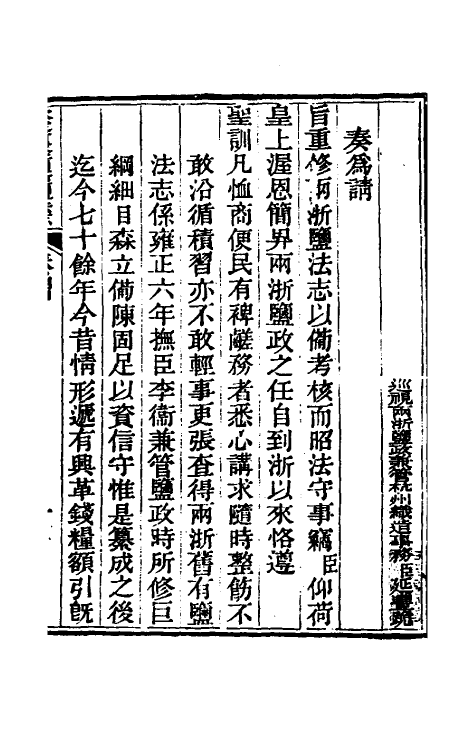 巡視兩浙鹽政兼管杭州織造事務臣延豐疏
奏爲請
旨重修兩浙鹽法志以備考核而昭法守事竊臣仰荷
皇上渥恩簡畀兩浙鹽政之任自到浙以來恪遵
聖訓凡恤商便民有裨鹺務者悉心講求隨時整飭不
敢沿循積習亦不敢輕事更張查得兩浙舊有鹽
法志係雍正六年撫臣李衞兼管鹽政時所修巨
綱細目森立備陳固足以資信守惟是纂成之後
迄今七十餘年今昔情形遞有興革錢糧額引旣